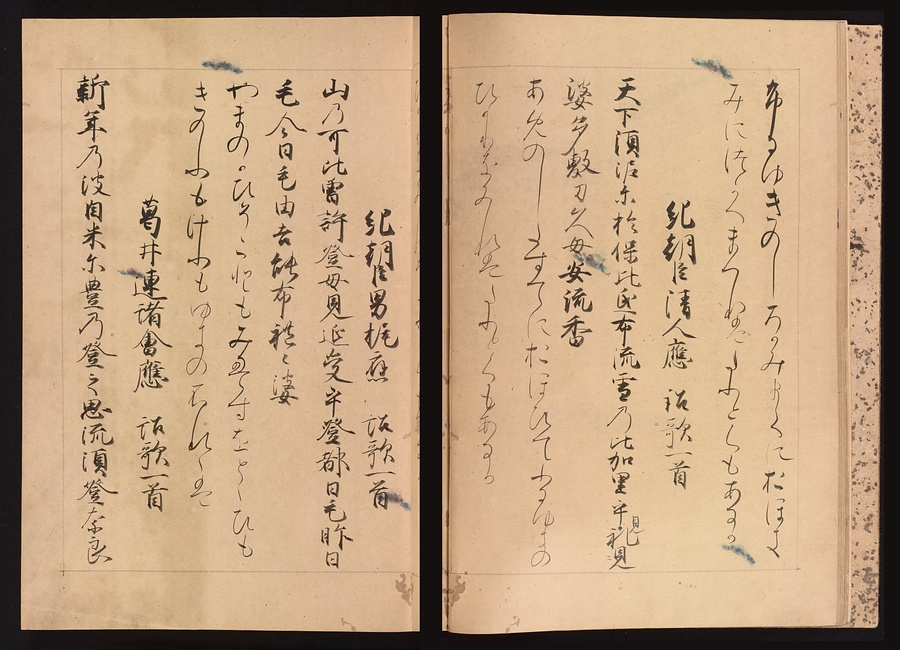 布るゆきのしろかみまてにおほき
みにつかへまつれはたふとくもあるか
紀朝臣清人應 詔歌一首
天下須泥尓於保比氐布流雪乃比加里乎礼見
婆多敷刀久母安流香
あめのしたすてにおほひてふるゆきの
ひかりをみれはたふとくもあるか
紀朝臣男梶應 詔歌一首
山乃可比曽許登母見延受乎登都日毛昨日
毛今日毛由吉能布礼々婆
やまのかひそことももみえすをとつひも
きのふもけふもゆきのふれゝは
葛井連諸會應 詔歌一首
新年乃波自米尓豊乃登之思流須登奈良